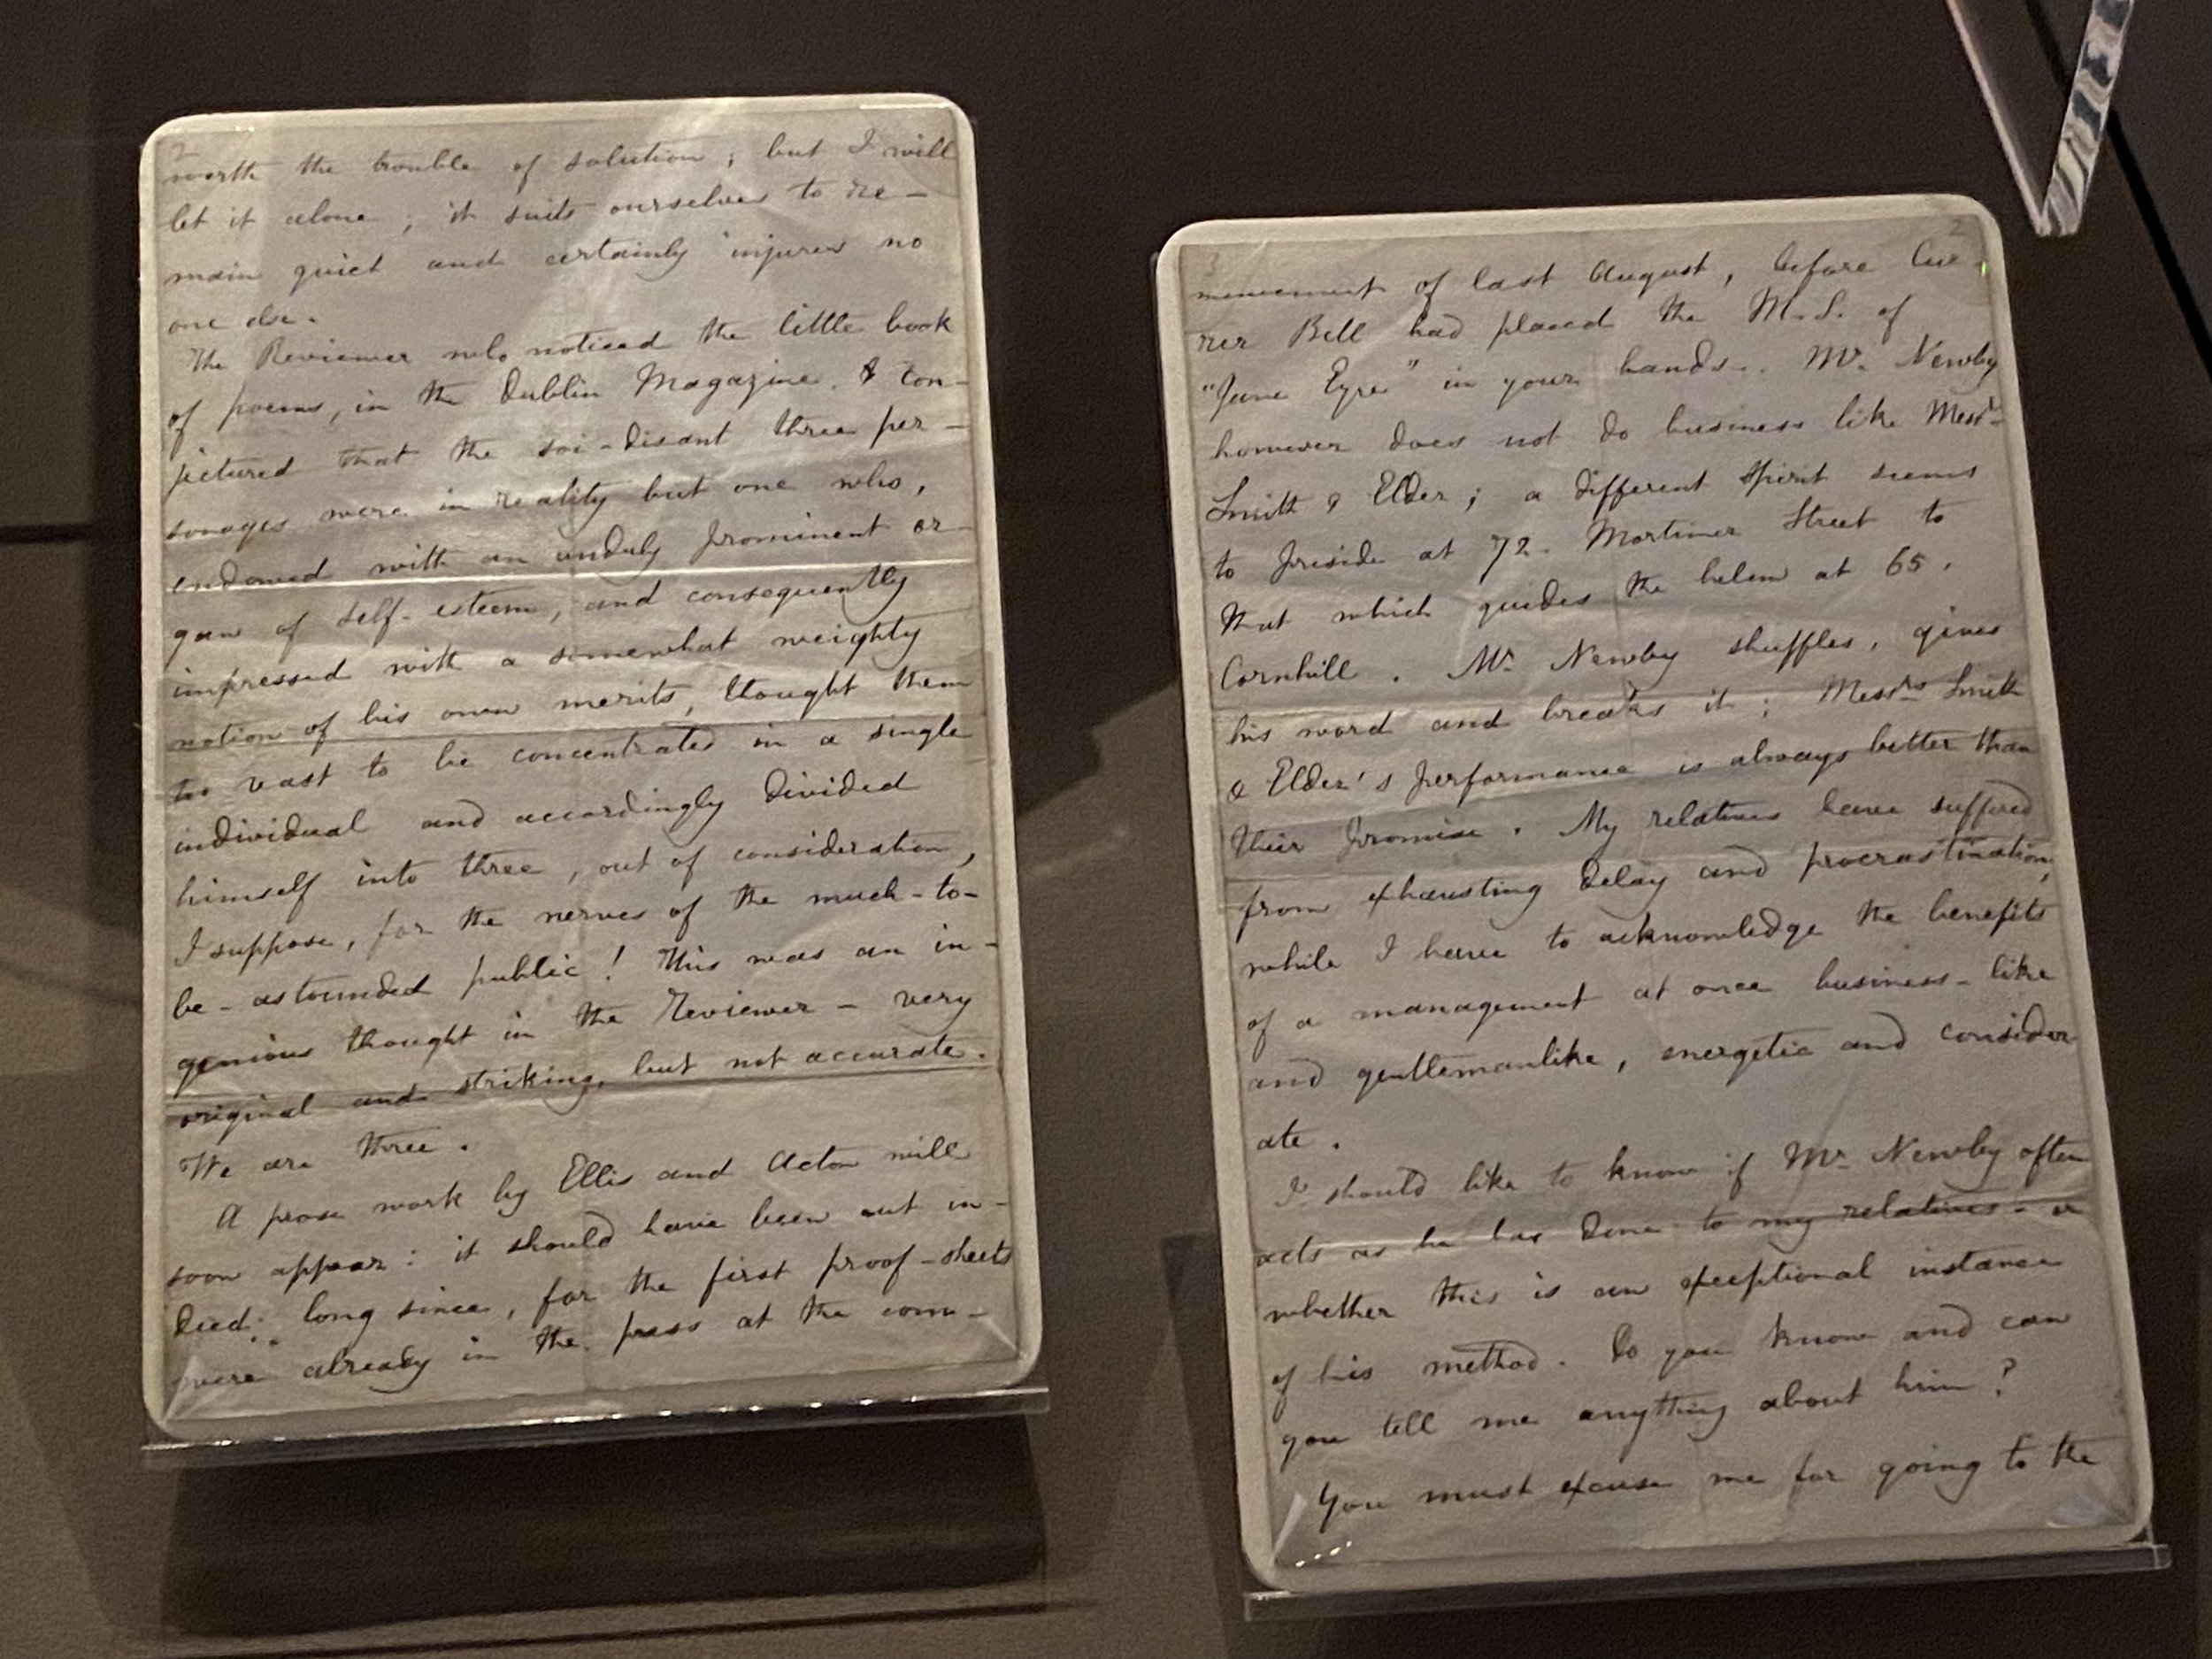 2
worth the trouble of solution ; but I will
let it alone ; it suits ourselves to re-
main quiet and certainly injures no
one else.
The Reviewer who noticed the little book
of poems, in the Dublin Magazine, con-
jectured that the soi-disant three per-
sonages were in reality but one who,
endowed with an unduly prominent or-
gan of self-esteem, and consequently
impressed with a somewhat weighty
notion of his own merits, thought them
too vast to be concentrated in a single
individual and accordingly divided
himself into three, out of consideration,
I suppose, for the nerves of the much-to-
be-astounded public! This was an in-
genious thought in the Reviewer - very
original and striking, but not accurate.
We are three.
A prose work by Ellis and Acton will
soon appear : it should have been out in-
deed, long since, for the first proof-sheets
were already in the press at the com-
3
2
mencement of last August, before Cur-
rer Bell had placed the M.S. of
"Jane Eyre" in your hands. Mr. Newby
however does not do business like Messrs
Smith & Elder ; a different spirit seems
to preside at 72. Mortimer Street to
that which guides the helm at 65,
Cornhill. Mr. Newby shuffles, gives
his word and breaks it ; Messrs Smith
& Elder's performance is always better than
their promise. My relatives have suffered
from exhausting delay and procrastination,
while I have to acknowledge the benefits
of a management at once business-like
and gentlemanlike, energetic and consider
ate.
I should like to know if Mr. Newby often
acts as he has done to my relatives - or
whether this is an exceptional instance
of his method. Do you know and can
you tell me anything about him ?
You must excuse me for going to the